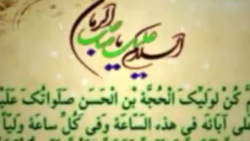 السلام علیک یا صاحب الزمان
كُنْ لِوَلِیِّکَ الْحُجَّةِ بْنِ الْحَسَنِ صَلَواتُکَ عَلَیْ
عَلی آبائِهِ فی هذِهِ السَّاعَةِ وَفی کُلِّ ساعَةٍ وَلِیّاً